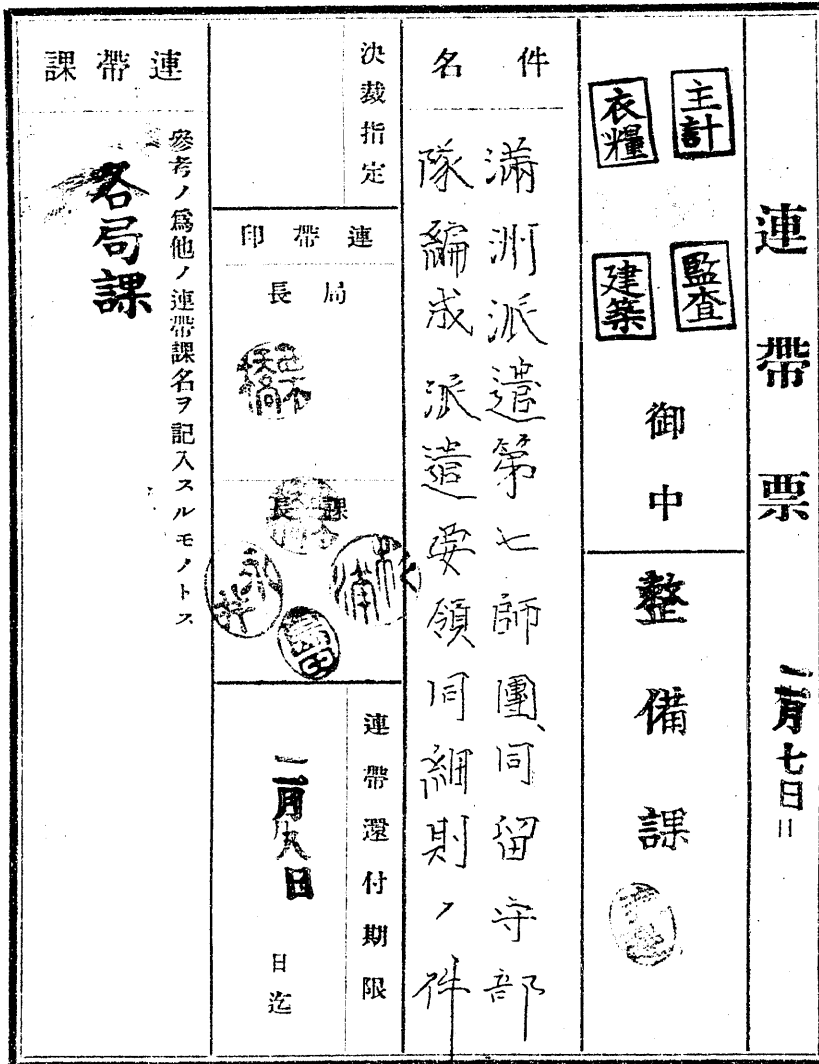 連帶票
二月七日
主計
監査
衣糧
建築
御中
整備課
件名
滿洲派遣第七師團、同留守部
隊編成派遣要領同細則ノ件
決裁指定
連帶印
局長
課長
連帶還付期限
二月八日
日迄
連帶課
參考ノ爲他ノ連帶課名ヲ記入スルモノトス
各局課